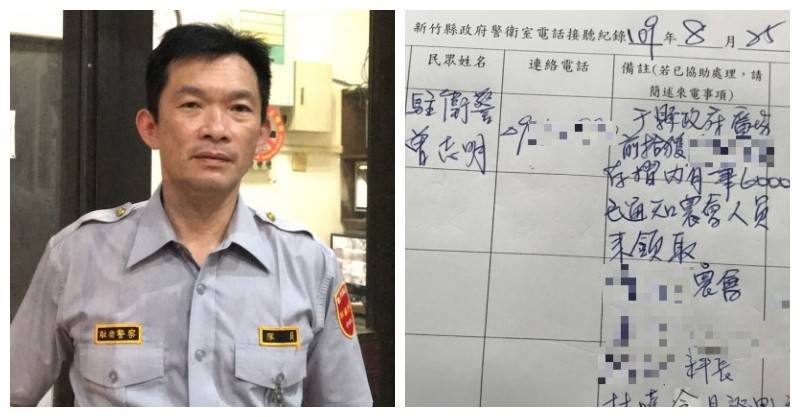 駐衛警察
隊員
新竹縣政府警衛室電話接聽紀錄 109 年 8 月 25
民眾姓名
連絡電話
備註(若已協助處理，請
簡述來電事項)
駐衛警
曾志明
09
于縣政府廣場
前拾獲
存摺內有一筆6000
已通知農會人員
來領取
農會
科長